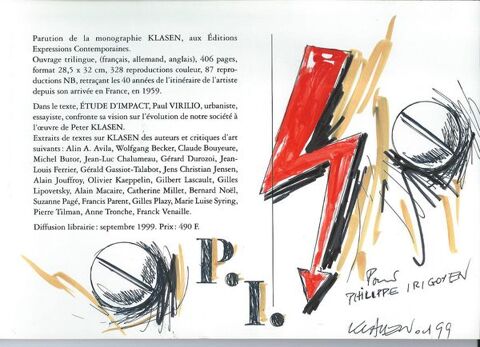 Parution de la monographie KLASEN, aux Éditions
Expressions Contemporaines.
Ouvrage trilingue, (français, allemand, anglais), 406 pages,
format 28,5 x 32 cm, 328 reproductions couleur, 87 repro-
ductions NB, retraçant les 40 années de l'itinéraire de l'artiste
depuis son arrivée en France, en 1959.
Dans le texte, ÉTUDE D'IMPACT, Paul VIRILIO, urbaniste,
essayiste, confronte sa vision sur l'évolution de notre société à
l'œuvre de Peter KLASEN.
Extraits de textes sur KLASEN des auteurs et critiques d'art
suivants : Alin A. Avila, Wolfgang Becker, Claude Bouyeure,
Michel Butor, Jean-Luc Chalumeau, Gérard Durozoi, Jean-
Louis Ferrier, Gérald Gassiot-Talabot, Jens Christian Jensen,
Alain Jouffroy, Olivier Kaeppelin, Gilbert Lascault, Gilles
Lipovetsky, Alain Macaire, Catherine Millet, Bernard Noël,
Suzanne Pagé, Francis Parent, Gilles Plazy, Marie Luise Syring,
Pierre Tilman, Anne Tronche, Franck Venaille.
Diffusion librairie : septembre 1999. Prix : 490 F.
P.
I.
Pour
PHILIPPE IRIGOYEN
KLASEN 99